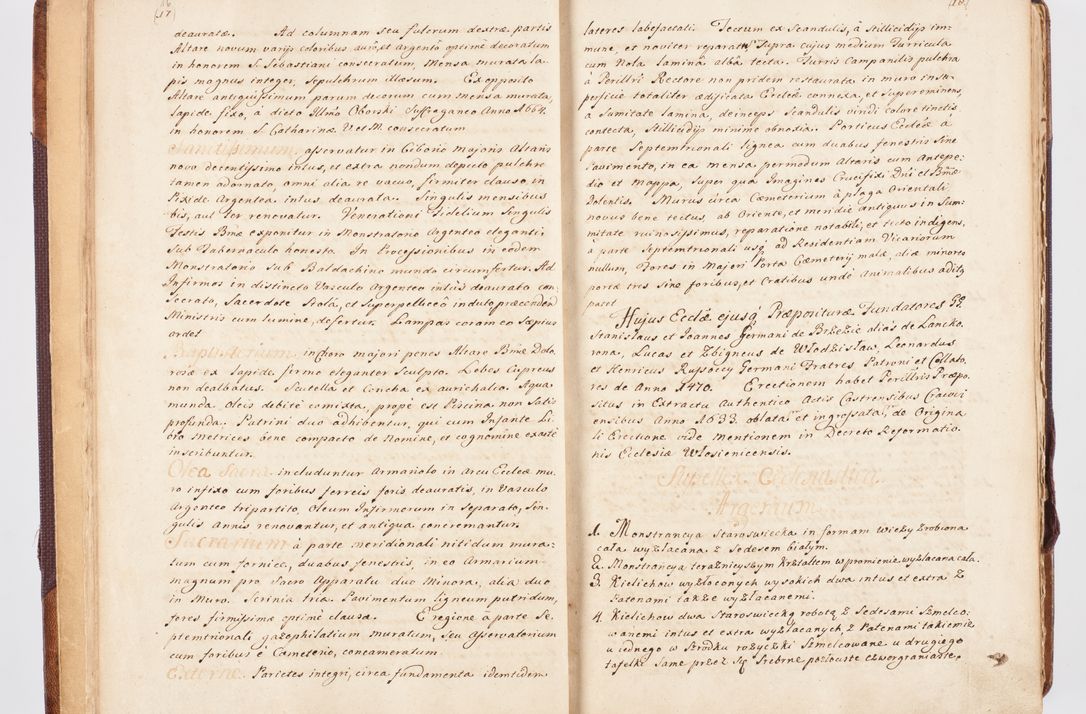 16
(17)
deauratæ. Ad columnam seu fulcrum dextræ partis
Altare novum varijs coloribus auro, et Argento optime decoratum
in honorem S. Sebastiani consecratum, Mensa murata la-
pis magnus integer, Sepulchrum illæsum. Ex opposito
Altare antiquissimum parum decorum cum mensa murata,
Lapide fixo, à dicto Illmo Oborski Suffraganeo Anno 1664.
in honorem S. Catharinæ V. et M. consecratum
Sanctissimum, asservatur in Ciborio Majoris Altaris
novo decentissimo intus, et extra nondum depicto pulchre
tamen adornato, omni alia re vacuo, firmiter clauso, in
Pixide Argentea intus deaurata. Singulis mensibus
bis, aut ter renovatur. Venerationi Fidelium Singulis
Festis Bmæ exponitur in Monstratorio Argenteo eleganti
Sub Tabernaculo honesto. In Processionibus in eodem
Monstratorio Sub Baldachino mundo circumfertur. Ad
Infirmos in distincto Vasculo Argenteo intus deaurato con
Secrato, Sacerdote Stolâ, et Superpelliceô induto præcedente
Ministris cum lumine, defertur. Lampas coram eo Sæpius
ardet
Baptisterium, in Choro majori penes Altare Bmæ Dolo
rosæ ex lapide firmo eleganter Sculpto. Lebes Cupreus
non dealbatus. Scutella et Concha ex aurichalco. Aqua
munda Oleis debitè comixta, propè est Piscina non Satis
profunda. Patrini duo adhibentur, qui cum Infante Li
bro Metrices bene compacto de Nomine, et cognomine exactè
inscribuntur.
Olea Sacra includuntur Armariolo in Arcu Ecclæ mu
ro infixo cum foribus ferreis foris deauratis, in Vasculo
Argenteo tripartito, Oleum Infirmorum in Separato, Sin-
gulis annis renovantur, et antiqua concremantur.
Sacrarium à parte meridionali nitidum mura=
tum cum fornice, duabus fenestris, in eo Armarium
magnum pro Sacro Apparatu duo Minora, alia duo
in Muro. Scrinia tria. Pavimentum ligneum putridum,
fores firmissimæ optimè clausæ. E regione à parte Se
ptemtrionali gazophilatium muratum, seu Asservatorium
cum foribus è Cæmeterio, concameratum.
Externe. Parietes integri, circa fundamenta identidem
(18)
lateres labefactati. Tectum ex Scandulis, à Stillicidijs im=
mune, et noviter reparatum Supra cujus medium Turricula
cum Nola laminâ albâ tecta. Turris Campanilis pulchra
à Perillri Rectore non pridem restaurata in muro insu-
perficie totaliter ædificata Ecclæ connexa, et Supereminens,
à Sumitate lamina, deinceps Scandulis viridi colore tinctis
contecta, Stillicidijs minimè obnoxia. Porticus Ecclæ à
parte Septemtrionali lignea cum duabus fenestris Sine
Pavimento, in ea mensa per modum Altaris cum Antepe=
dio et Mappa, Super quâ Imagines Crucifixi Dni et Bmæ
Dolentis. Murus circa Cæmeterium à plaga Orientali
novus bene tectus, ab Oriente, et meridie antiquus in Sum=
mitate ruinosissimus, reparatione notabili, et tecto indigens,
à parte Septemtrionali usq ad Residentiam Vicariorum
nullum, Fores in Majori Porta Cæmeterij malæ, aliæ minores
portæ tres Sine foribus, et Cratibus unde Animalibus aditus
patet
Hujus Ecclæ ejusq Præpositura Fundatores GG.
Stanislaus et Joannes Germani de Brzezie aliàs de Lancko.
rona, Lucas et Zbigneus de Włodzisław, Leonardus
et Henricus Russoccy Germani Fratres Patroni et Collato.
res de Anno 1470. Erectionem habet Perillris Præpo,
situs in Extractu Authentico Actis Castrensibus Cracovi
ensibus Anno 1633. oblatam et ingrossatam, de Origina
li Erectione vide mentionem in Decreto Reformatio=
nis Ecclesiæ Włosienicensis.
Supellex Ecclesiastica
Argentum
1. Monstrancya Staroswiecka in formam wieży zrobiona
cała wyzłacana z Sedesem białym.
2. Monstrancya teraznieyszym kształtem w promienie wyzłacana cała.
3. Kielichow wyzłoconych wysokich dwa intus et extra z
Patenami także wyzłacanemi.
4. Kielichow dwa Staroswiecką robotą z Sedesami Szmelco=
wanemi intus et extra wyzłacanych, z Patenami takiemiz
u iednego w Srodku rożyczki Szmelcowane u drugiego
tafelki Same przez Się Srebrne pozłociste czworgraniaste,